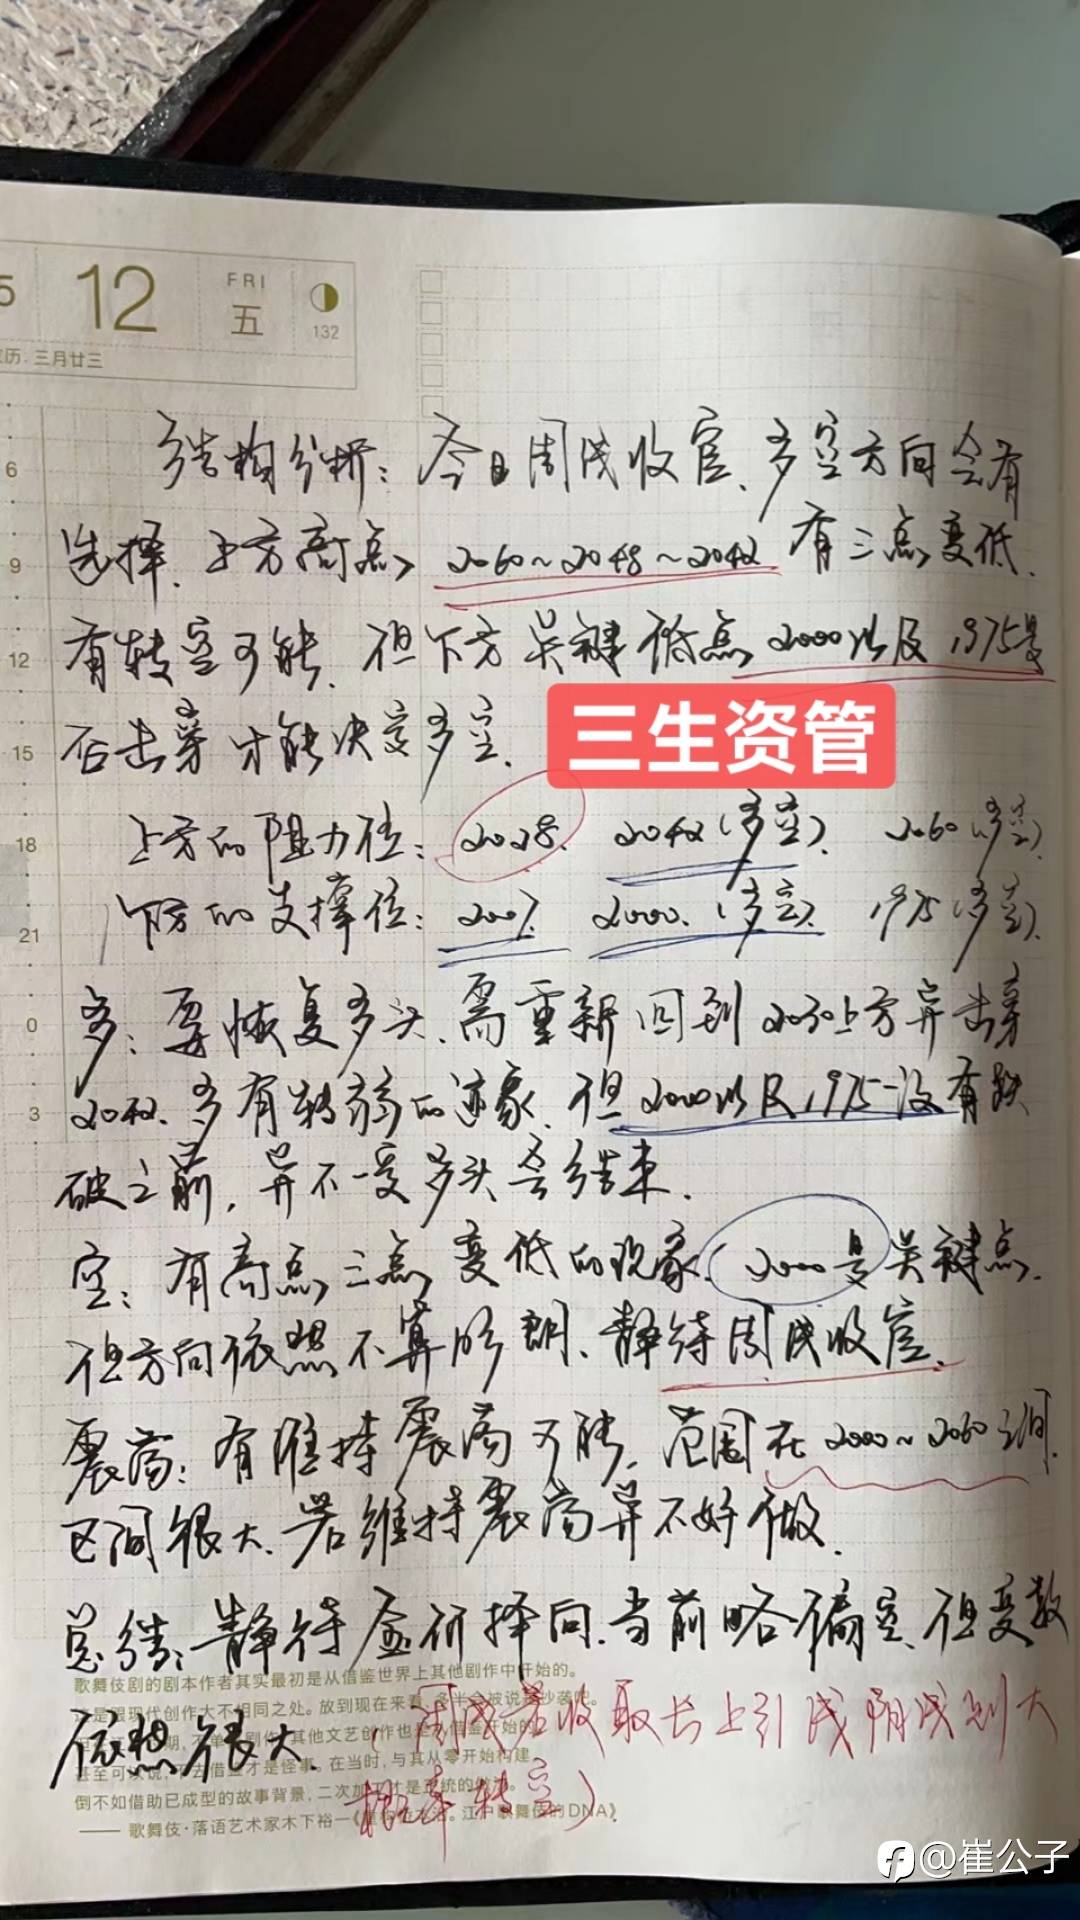 5 12 FRI 五 132
农历.三月廿三
6 结构分析：今日周线收官、多空方向会有
9 选择、上方高点 2060~2048~2042 有三点变低、
12 有转空可能、但下方关键低点 2000以及1975是
15 否击穿才能决定多空、
三生资管
18 上方的阻力位：2028、2042（多空）、2060（多空）、
21 下方的支撑位：2007、2000、（多空）、1975（多空）、
0 多：要恢复多头、需重新回到2030上方并击穿
3 2042、多有转弱的迹象、但2000以及1975没有跌
破之前，并不一定多头会结束、
空：有高点三点变低的现象、2000是关键点、
但方向依然不算明朗、静待周线收官、
震荡：有维持震荡可能、范围在2000~2060之间、
区间很大、若维持震荡并不好做、
总结：静待金价择向、当前略偏空、但变数
依然很大、
（周线若收取长上引线阴线则大
概率转空）
歌舞伎剧的剧本作者其实最初是从借鉴世界上其他剧作中开始的。
是跟现代创作大不相同之处。放到现在来看，多半会被说是抄袭吧。
其他文艺创作也是从借鉴开始的，
甚至可以说，不去借鉴才是怪事。在当时，与其从零开始构建，
倒不如借助已成型的故事背景，二次加工才是正统的做法。
—— 歌舞伎·落语艺术家木下裕一《江户歌舞伎的DNA》
@崔公子